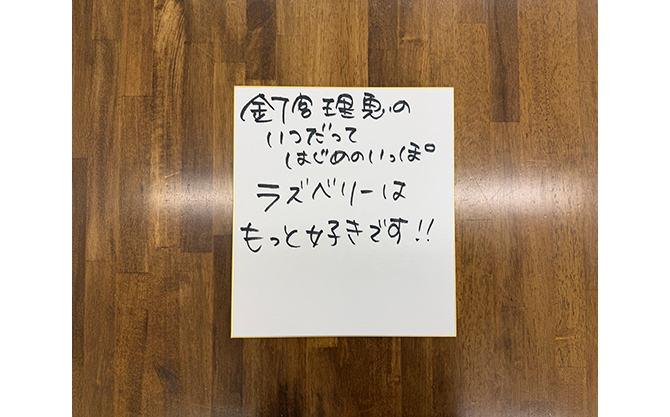 釘宮理恵の
いつだって
はじめのいっぽ
ラズベリーは
もっと好きです!!